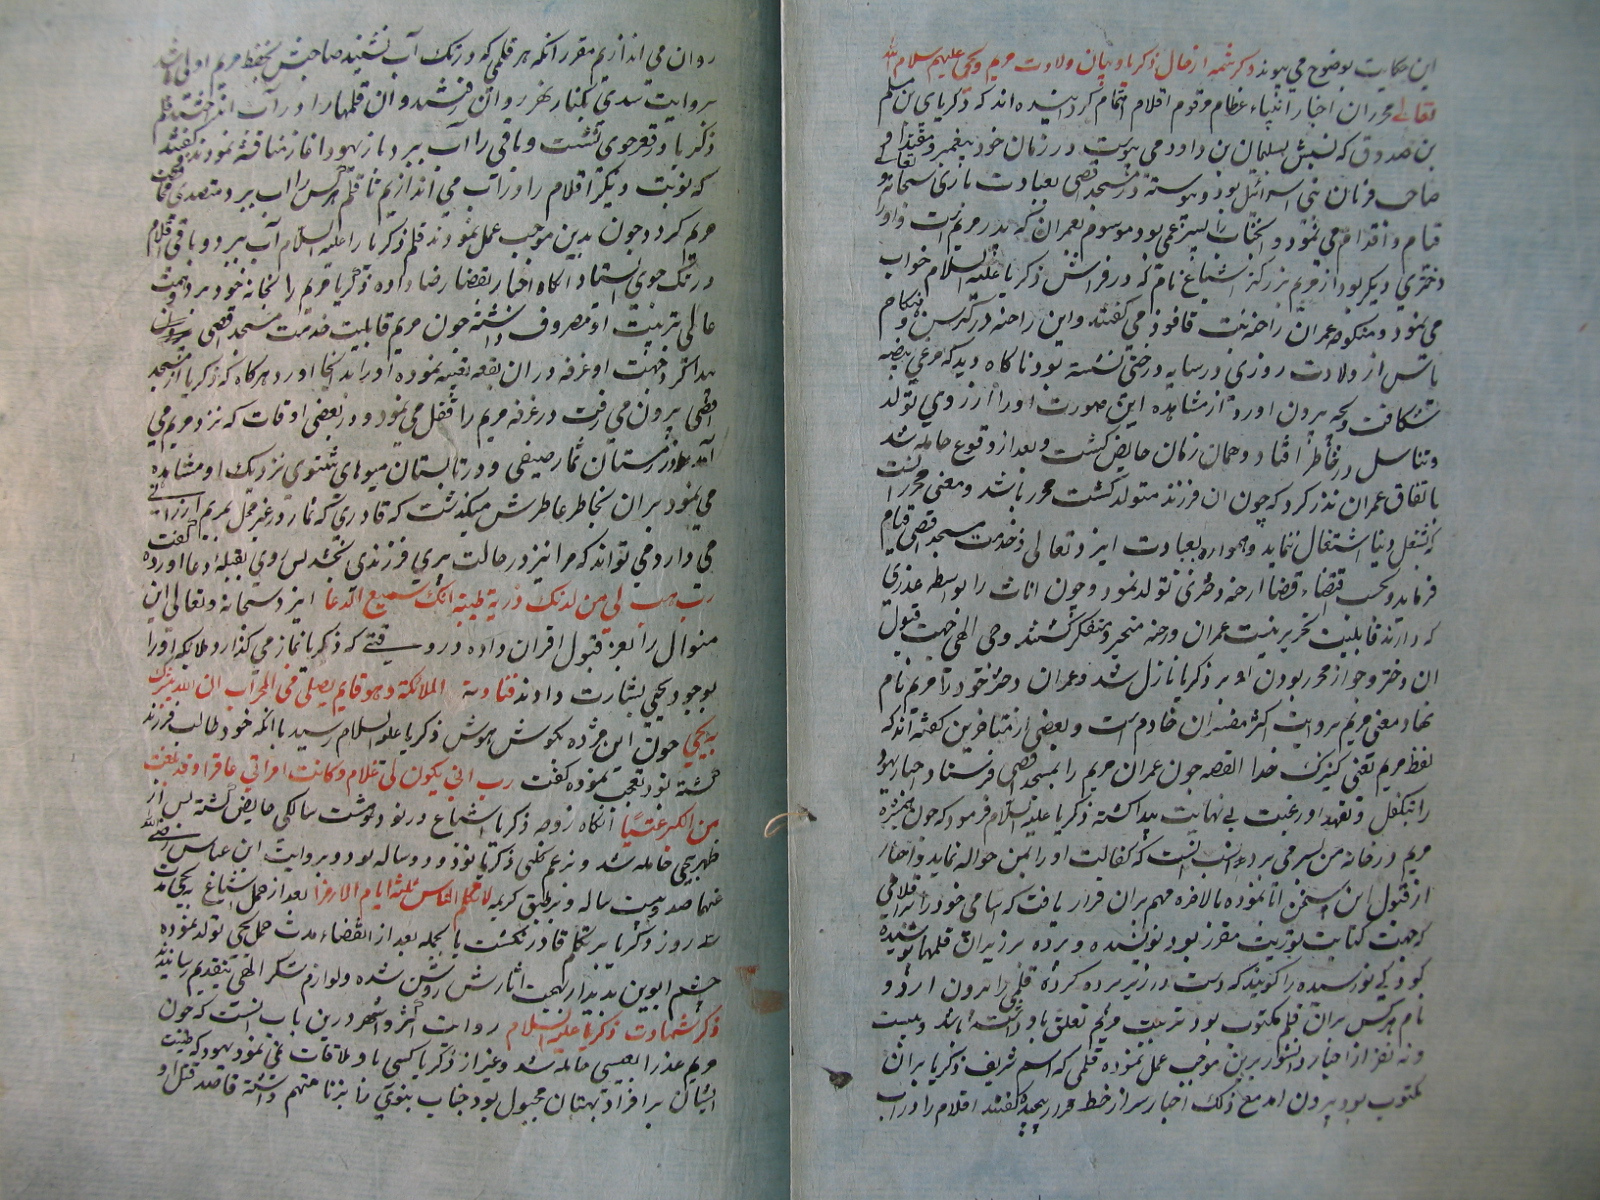 این حکایت بوضوح می پیوندد ذکر شمه از حال ذکریا و بیان ولادت مریم و یحیی علیهم سلام الله
تعالی محرران اخبار انبیاء عظام مرقوم اقلام اهتمام کردانیده اند که ذکریای بن مسلم
بن صدوق که نسبش بسلیمان بن داود می پیوست در زمان خود پیغمبر و مقتدا و
صاحب قربان بنی اسرائیل بود و پیوسته در مسجد اقصی بعبادت باری سبحانه و تعالی
قیام و اقدام می نمود و آنجناب را پسر عمی بود موسوم بعمران که پدر مریم است و او را
دختری دیکر بود از مریم بزرکتر اشیاع نام که در فراش ذکریا علیه السلام خواب
می نمود و منکوحه عمران را حنه بنت فاقوذ می کفتند و این را حنه در کبر سن و هنکام
یاس از ولادت روزی در سایه درختی نشسته بود ناکاه دید که مرغی بیضه
شکافت و بچه بیرون اورد از مشاهده این صورت او را ارزوی تولد
و تناسل در خاطر افتاد و همان زمان حایض کشت و بعد از وقوع حامله شد
باتفاق عمران نذر کرد که چون ان فرزند متولد کشت محرر باشد و معنی محرر انست
که بشغل دنیا اشتغال ننماید و همواره بعبادت ایزد تعالی و خدمت مسجد اقصی قیام
فرماید و بحسب قضاء قضا از حنه دختری تولد نمود و چون اناث را بواسطه عذری
که دارند قابلیت تحریر نیست عمران و حنه متحیر و متفکر کشتند وحی الهی جهت قبول
ان دختر و جواز محرر بودن او بر ذکریا نازل شد و عمران دختر خود را مریم نام
نهاد و معنی مریم بروایت اکثر مفسران خادم است و بعضی از متاخرین کفته اند که
لفظ مریم یعنی کنیزک خدا القصه چون عمران مریم را بمسجد اقصی فرستاد احبار یهود
را بتکفل و تعهد او رغبت بی نهایت پیدا کشته ذکریا علیه السلام فرمود که چون همشیره
مریم در خانه من بسر می برد انسب انست که کفالت او را بمن حواله نماید و احبار
از قبول این سخن ابا نموده بالاخره مهم بران قرار یافت که اسامی خود را بر اقلامی
که جهت کتابت توریت مقرر بود نویسند و پرده بر زبر ان قلمها پوشیده
کودکی نورسیده را کویند که دست در زیر پرده کرده قلمی را بیرون ارد و
نام هر کس بران قلم مکتوب بود تربیت مریم تعلق باو داشته باشد و بیست
و نه نفر از احبار دانشور برین موجب عمل نموده قلمی که اسم شریف ذکریا بران
مکتوب بود بیرون امد مع ذلک احبار سر از خط قرار پیچیده کفتند اقلام را در اب
روان می اندازیم مقرر انکه هر قلمی که در تک آب نشیند صاحبش بحفظ مریم اولی باشد
بروایت سدی بکنار نهر روان رفتند و ان قلمها را در آب انداختند قلم
ذکریا در قعر جوی نشست و باقی را آب ببرد باز یهود اغاز مناقشه نمودند کفتند
که نوبت دیکر اقلام را در آب می اندازیم تا قلم هر کس را اب ببرد متصدی محافظت
مریم کردد چون بدین موجب عمل نمودند قلم ذکریا را علیه السلام آب ببرد و باقی اقلام
در تک جوی استاد انکاه احبار بقضا رضا داده ذکریا مریم را بخانه خود برد و همت
عالی بتربیت او مصروف داشته چون مریم قابلیت خدمت مسجد اقصی
پیدا کرد جهت او غرفه در ان بقعه تعیین نموده او را بدانجا اورد و هرکاه که ذکریا از مسجد
اقصی بیرون می رفت در غرفه مریم را قفل می نمود و در بعضی اوقات که نزد مریم می
آمد در زمستان ثمار صیفی و در تابستان میوهای شتوی نزدیک او مشاهده
می نمود بران بخاطر عاطرش میکذشت که قادری که ثمار در غیر محل بمریم ارزانی
می دارد می تواند که مرا نیز در حالت پیری فرزندی بخشد پس روی بقبله دعا اورده کفت
رب هب لی من لدنک ذریة طیبة انک سمیع الدعا ایزد سبحانه و تعالی این
منوال را بعز قبول اقران داده در وقتی که ذکریا نماز می کذارد ملائکه او را
بوجود یحیی بشارت دادند فنادته الملائکة و هو قایم یصلی فی المحراب ان الله یبشرک
به یحیی چون این مژده بکوش هوش ذکریا علیه السلام رسید با انکه خود طالب فرزند
کشته بود تعجب نموده کفت رب انی یکون لی غلام و کانت امراتی عاقرا و قد بلغت
من الکبر عتیا انکاه زوجه ذکریا اشیاع در نود و هشت سالکی حایض کشته پس از
طهر بیحیی حامله شد و بزعم کلبی ذکریا نود و دو ساله بود و بروایت ابن عباس رضی الله
عنهما صد و بیست ساله و بر طبق کریمه لا تکلم الناس ثلثه ایام الا رمزا بعد از حمل اشیاع بیحیی تا
سه روز ذکریا بر تکلم قادر نکشت بالجمله بعد از انقضاء مدت حمل یحیی تولد نموده
چشم ابوین بدیدار بهجت اثارش روشن شده و لوازم شکر الهی بتقدیم رسانیدند
ذکر شهادت ذکریا علیه السلام روایت اکثر و اشهر درین باب انست که چون
مریم عذرا بعیسی حامله شد و غیر از ذکریا کسی با او ملاقات نمی نمود یهود که طینت
ایشان بر افترا و بهتان مجبول بود جناب نبوی را بزنا متهم داشته قاصد قتل او